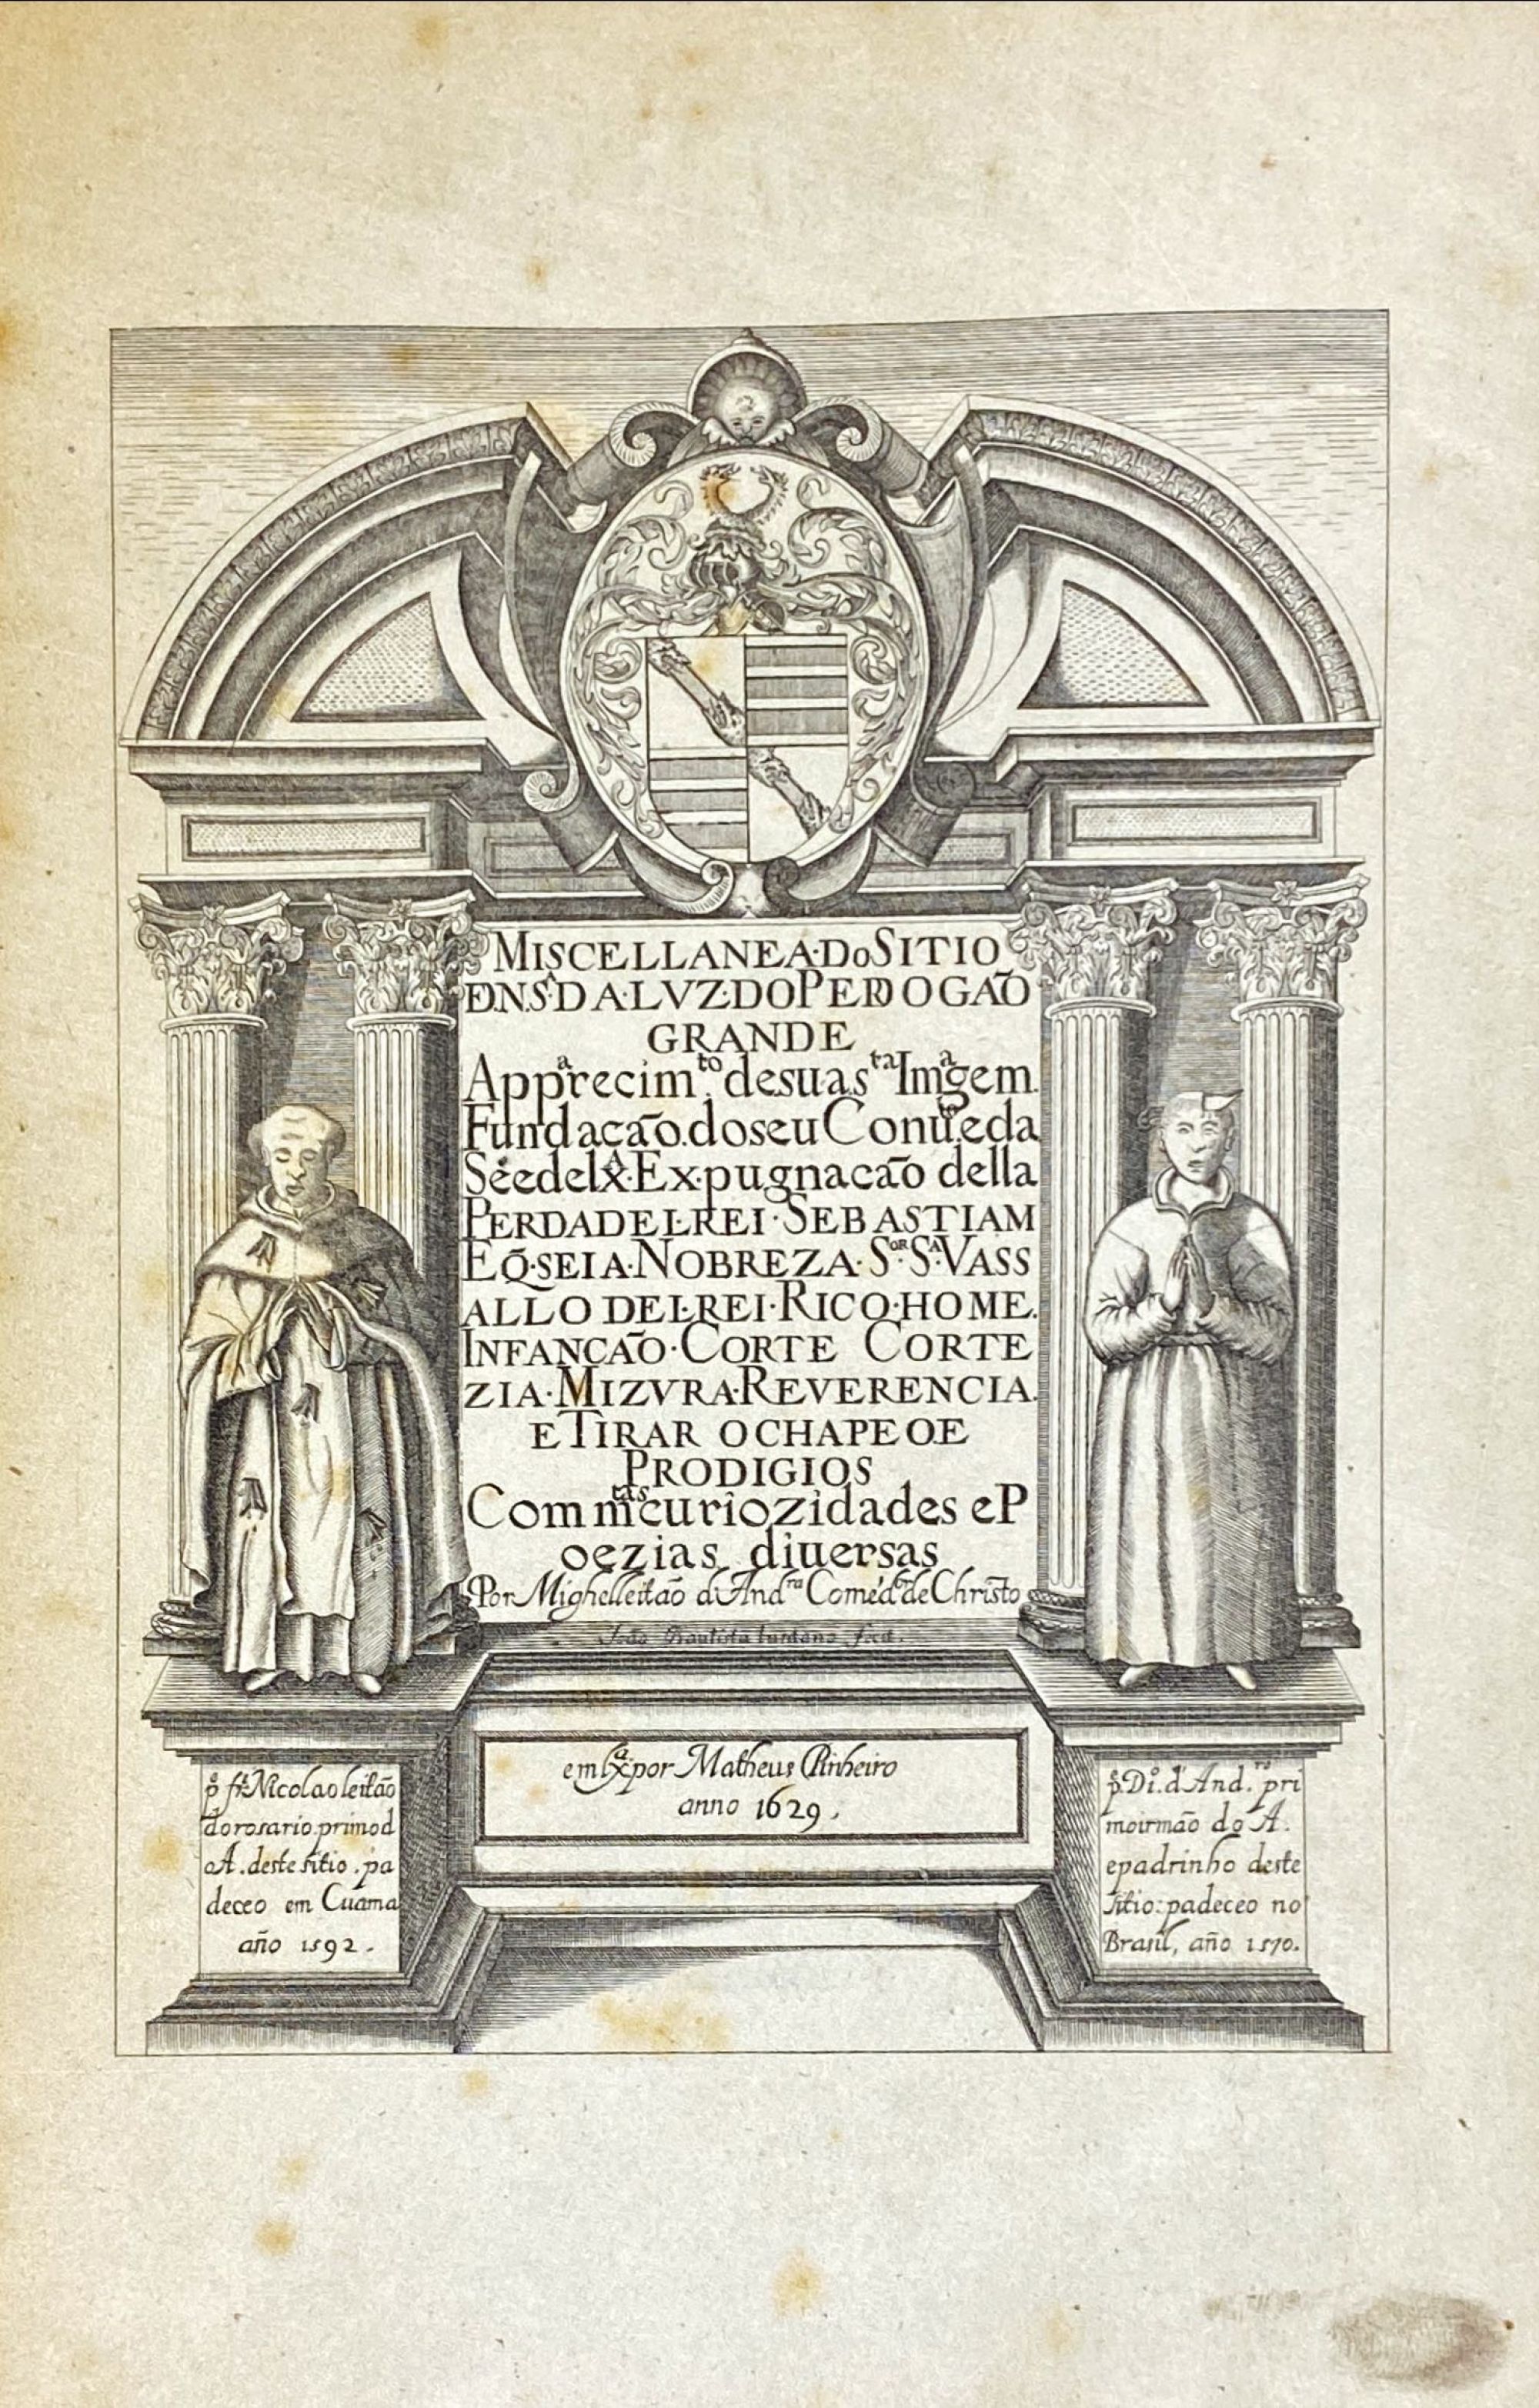 MISCELLANEA·DoSITIO
D.N.Sᴬ·DA·LVZ·DOPEDROGAÕ
GRANDE
Appᵃrecimᵗᵒ. desuasᵗᵃ Imᵃgem.
Fundaçaõ.doseuConuᵗᵒ.eda
Séedelxᴬ·Expugnacaõ della
PERDADELREI·SEBASTIAM
EQ̃·SEIA·NOBREZA·Sᴼᴿ·Sᴬ·VASS
ALLO DELREI·RICO·HOME.
INFANÇAÕ·CORTE CORTE
ZIA·MIZVRA·REVERENCIA.
E TIRAR OCHAPEO.E
PRODIGIOS
Com mᵗᵃˢcuriozidades eP
oezias diuersas
Por Mighelleitaõ d'Andʳᵃ Comẽdᵒʳ de Christo
João Bautista fecit.
em lxᵃ·por Matheus Pinheiro
anno 1629.
pᵉ frᵉ Nicolao leitaõ
dorosario.primod
oA. deste sitio. pa
deceo em Cuama
año 1592.
pᵉ.Diᵒ. d'And.ʳᵒ pri
moirmão do A.
epadrinho deste
sitio: padeceo no
Brasil, año 1570.